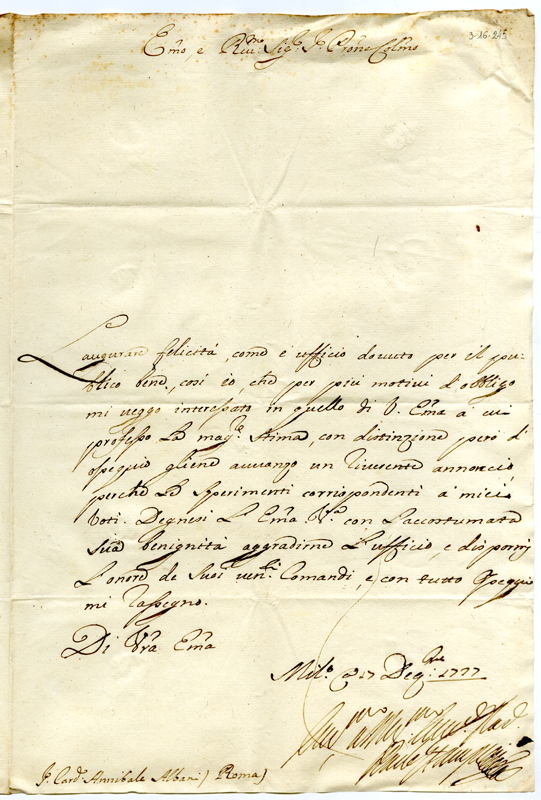 3-16-245
Emo, e Rmo Sigr. Pr. Prone Colmo
L'augurare felicità, come è ufficio dovuto per il pu-
blico bene, così io, che per più motivi d'obbligo
mi veggo interessato in quello di V. Emã à cui
professo la magr. stima, con distinzione però d'
ossequio gliene avvanzo un riverente annoncio
perche le sperimenti corrispondenti a' miei
Voti. Degnesi L'Emã Vra con L'accostumata
sua benignità aggradirne L'ufficio, e dispormi
L'onore de suoi ven.i Comandi, e con tutto Ossequio
mi rassegno.
Di Vrã Emã
Milo
Sr. Card. Annibale Albani) Roma)